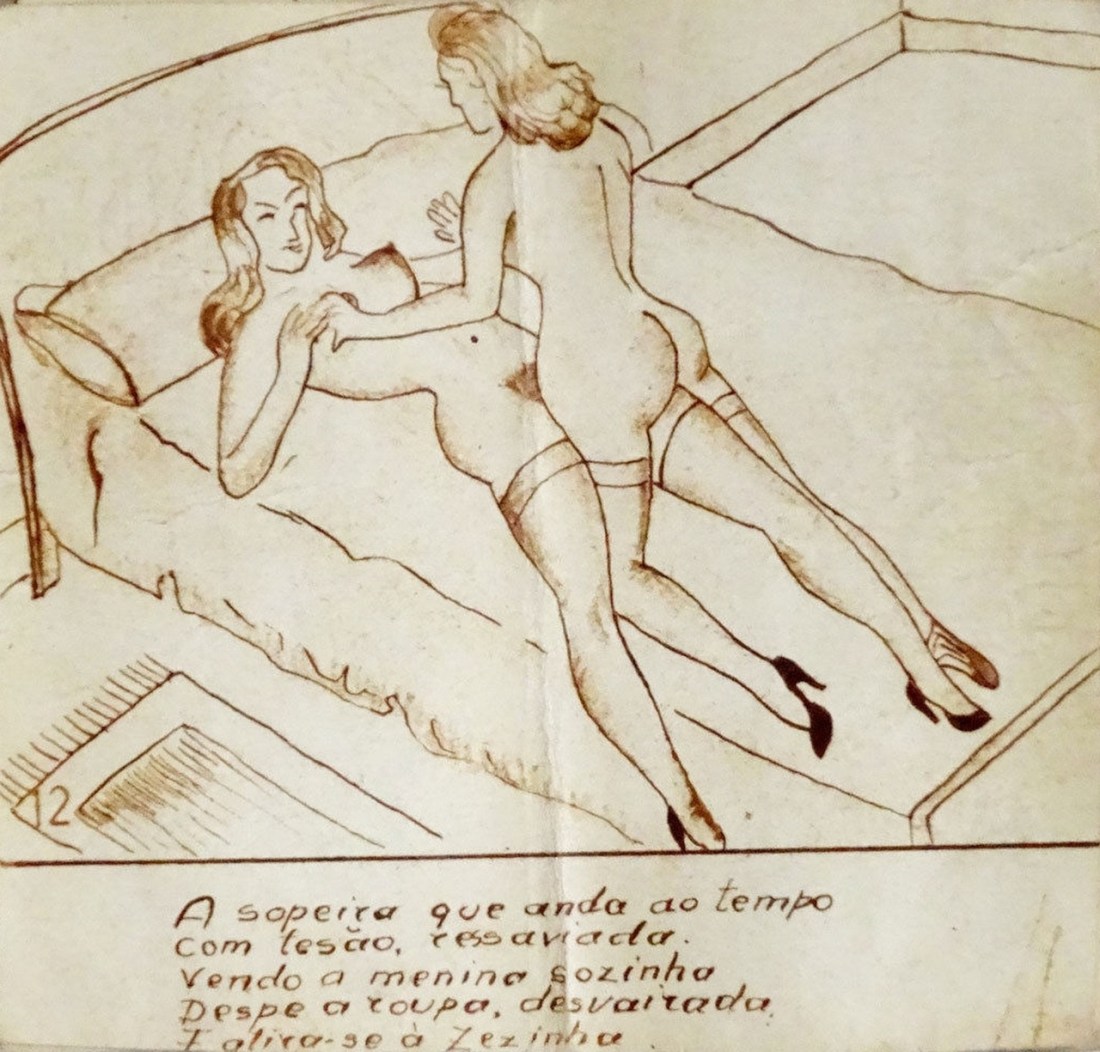 12
A sopeira que anda ao tempo
Com tesão, ressaviada.
Vendo a menina sozinha
Despe a roupa, desvairada,
E atira-se à Zezinha